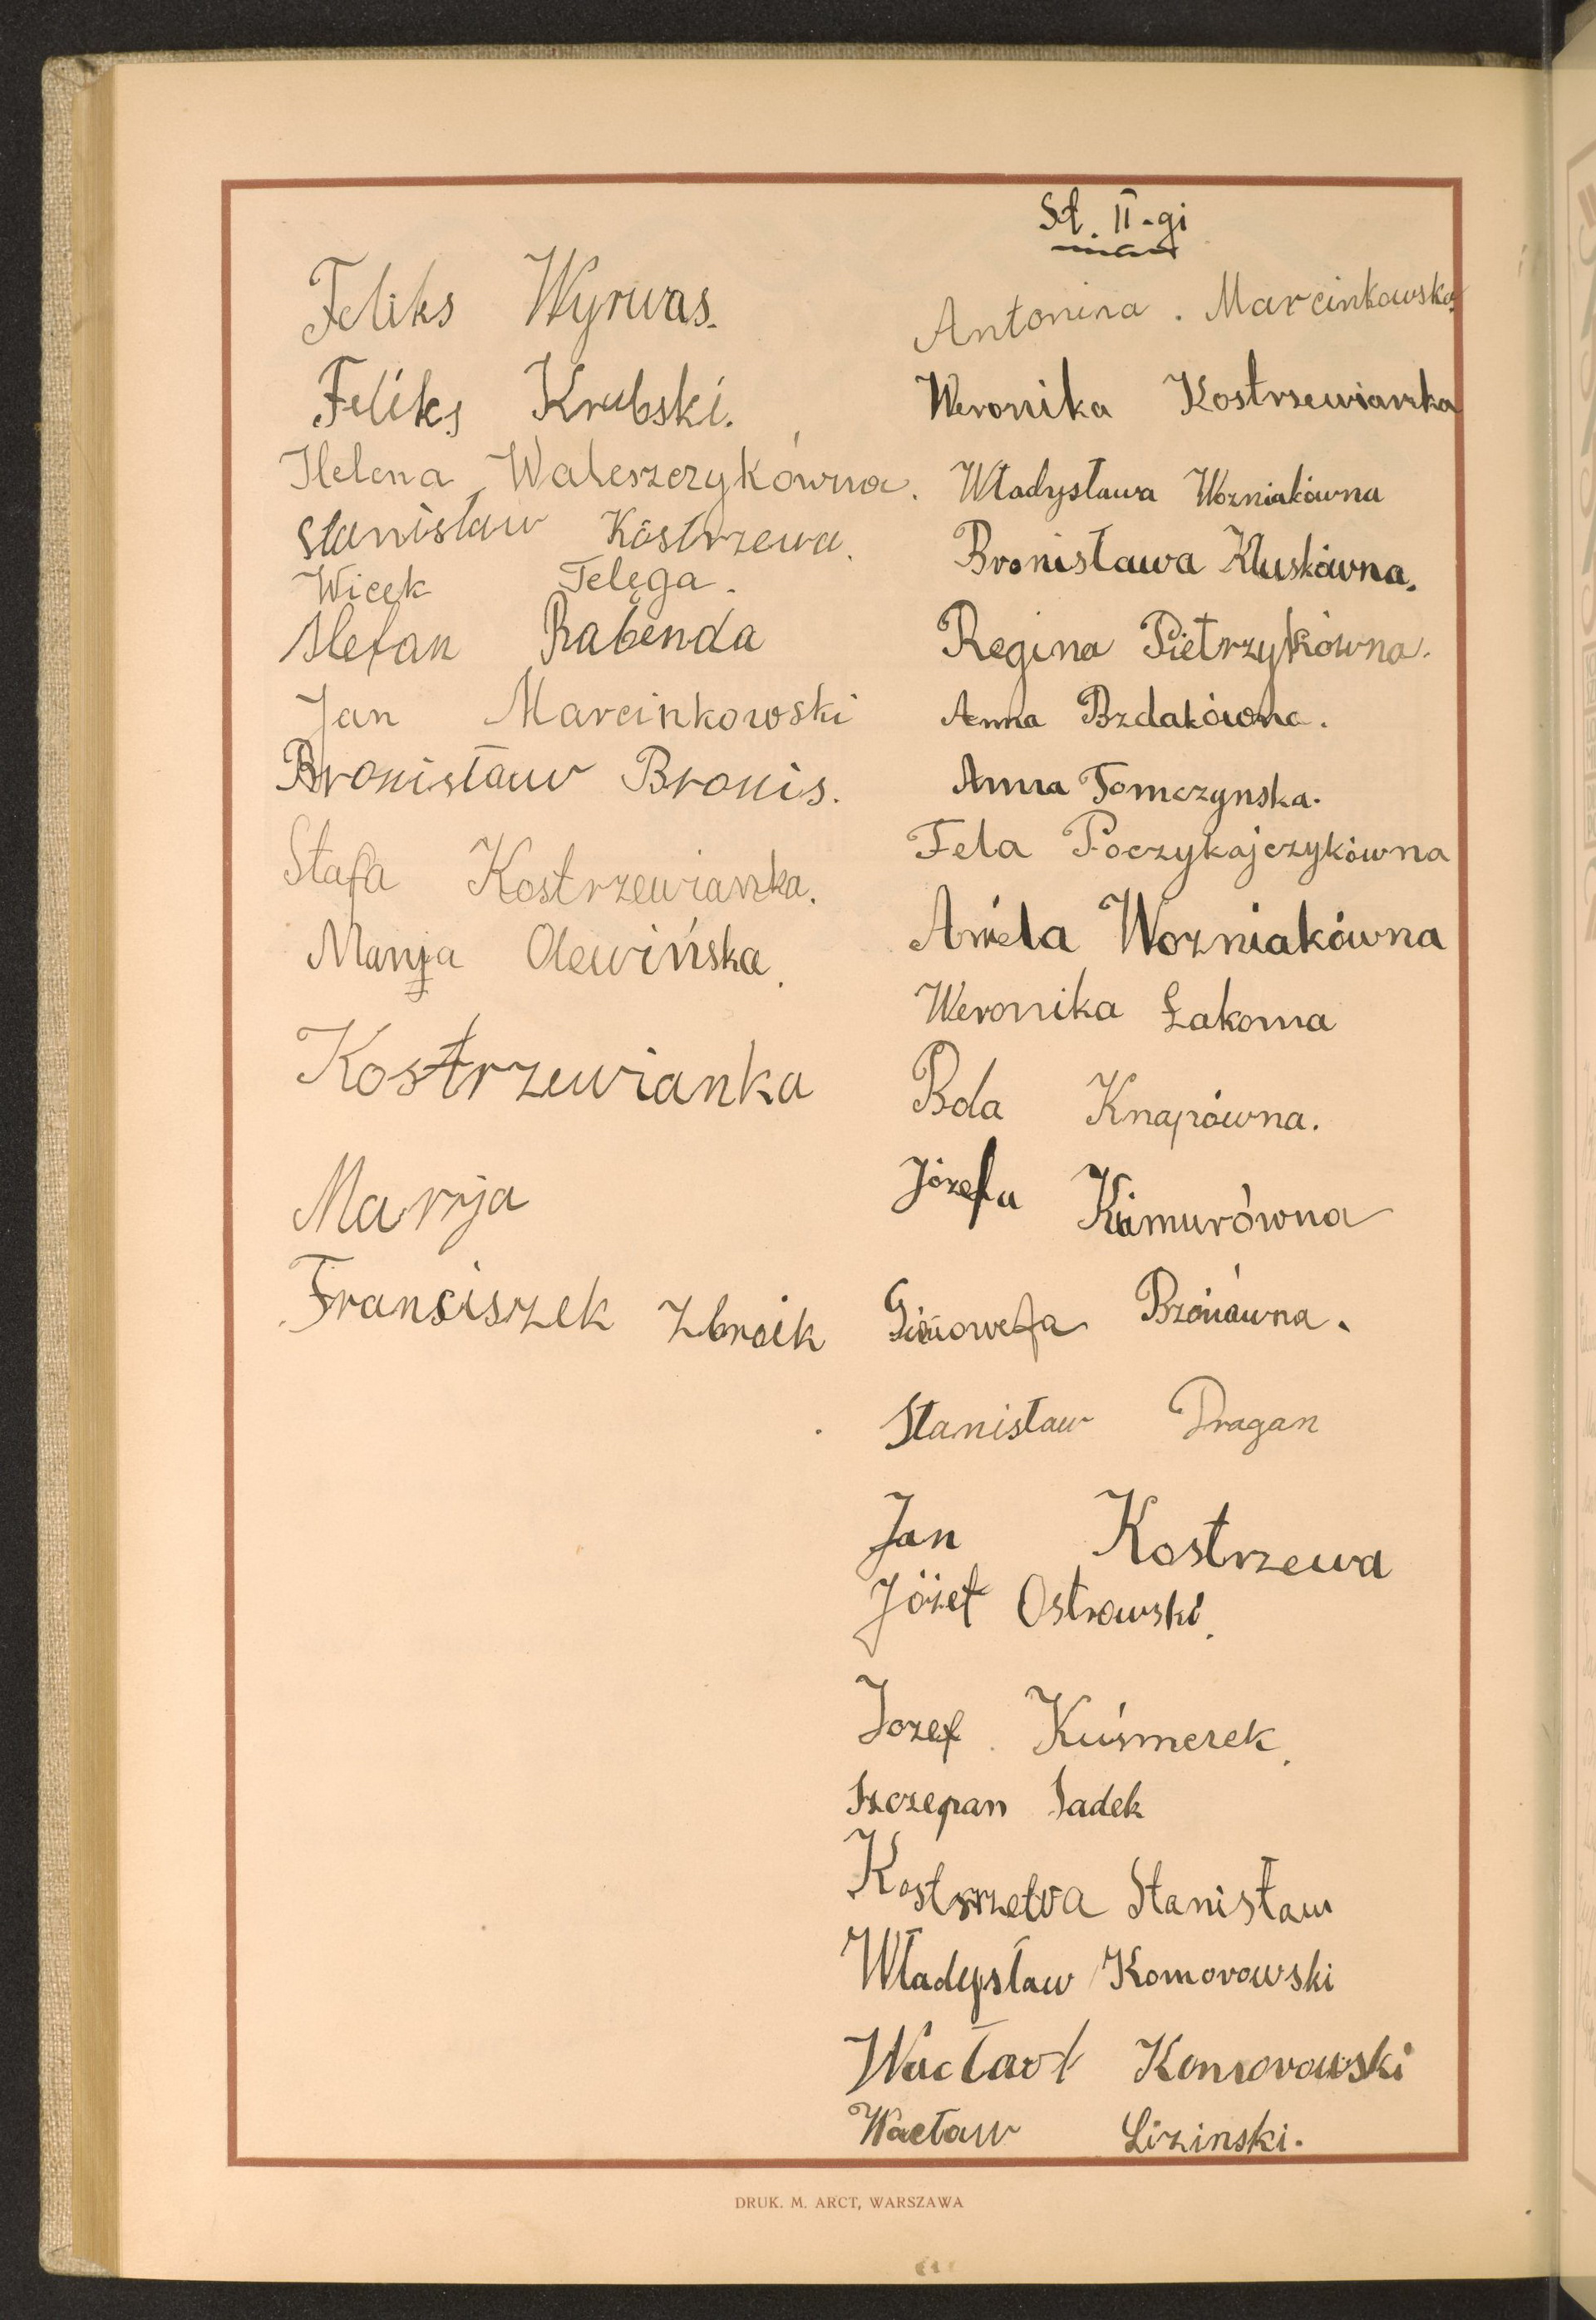 Feliks Wyrwas.
Feliks Krubski.
Helena Waleszczykówna.
Stanisław Kostrzewa.
Wicek Telęga.
Stefan Rabenda
Jan Marcinkowski
Bronisław Bronis.
Stafa Kostrzewianka.
Manja Olewińska.
Kostrzewianka
Marrja
Franciszek Zbroik
St. II-gi
Antonina. Marcinkowska
Weronika Kostrzewianka
Władysława Wozniakówna
Bronisława Kluskówna.
Regina Pietrzykówna.
Anna Bzdakówna.
Anna Tomczynska.
Fela Poczykajczykówna
Aniela Wozniakówna
Weronika Łakoma
Knapówna.
Józefa Kaimurówna
Stanisław Dragan
Jan Kostrzewa
Józef Ostrowski.
Jozef. Kuśmerek.
Szczepan Sadek
Kostrzewa Stanisław
Władysław Komorowski
Wacław Komorowski
Wacław Lizinski.
DRUK. M. ARCT, WARSZAWA